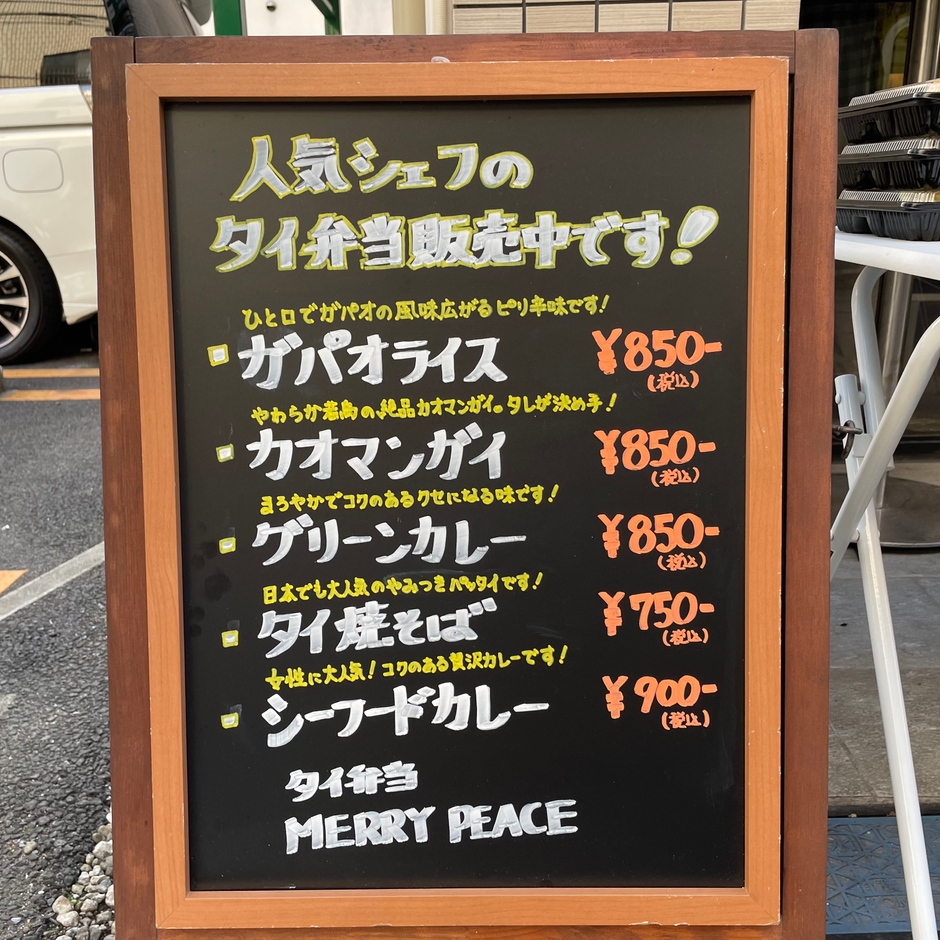 人気シェフの
タイ弁当販売中です!
ひと口でガパオの風味広がるピリ辛味です!
ガパオライス ¥850-
(税込)
やわらか若鳥の絶品カオマンガイ。タレが決め手!
カオマンガイ ¥850-
(税込)
まろやかでコクのあるクセになる味です!
グリーンカレー ¥850-
(税込)
日本でも大人気のやみつきパッタイです!
タイ焼そば ¥750-
(税込)
女性に大人気!コクのある贅沢カレーです!
シーフードカレー ¥900-
(税込)
タイ弁当
MERRY PEACE